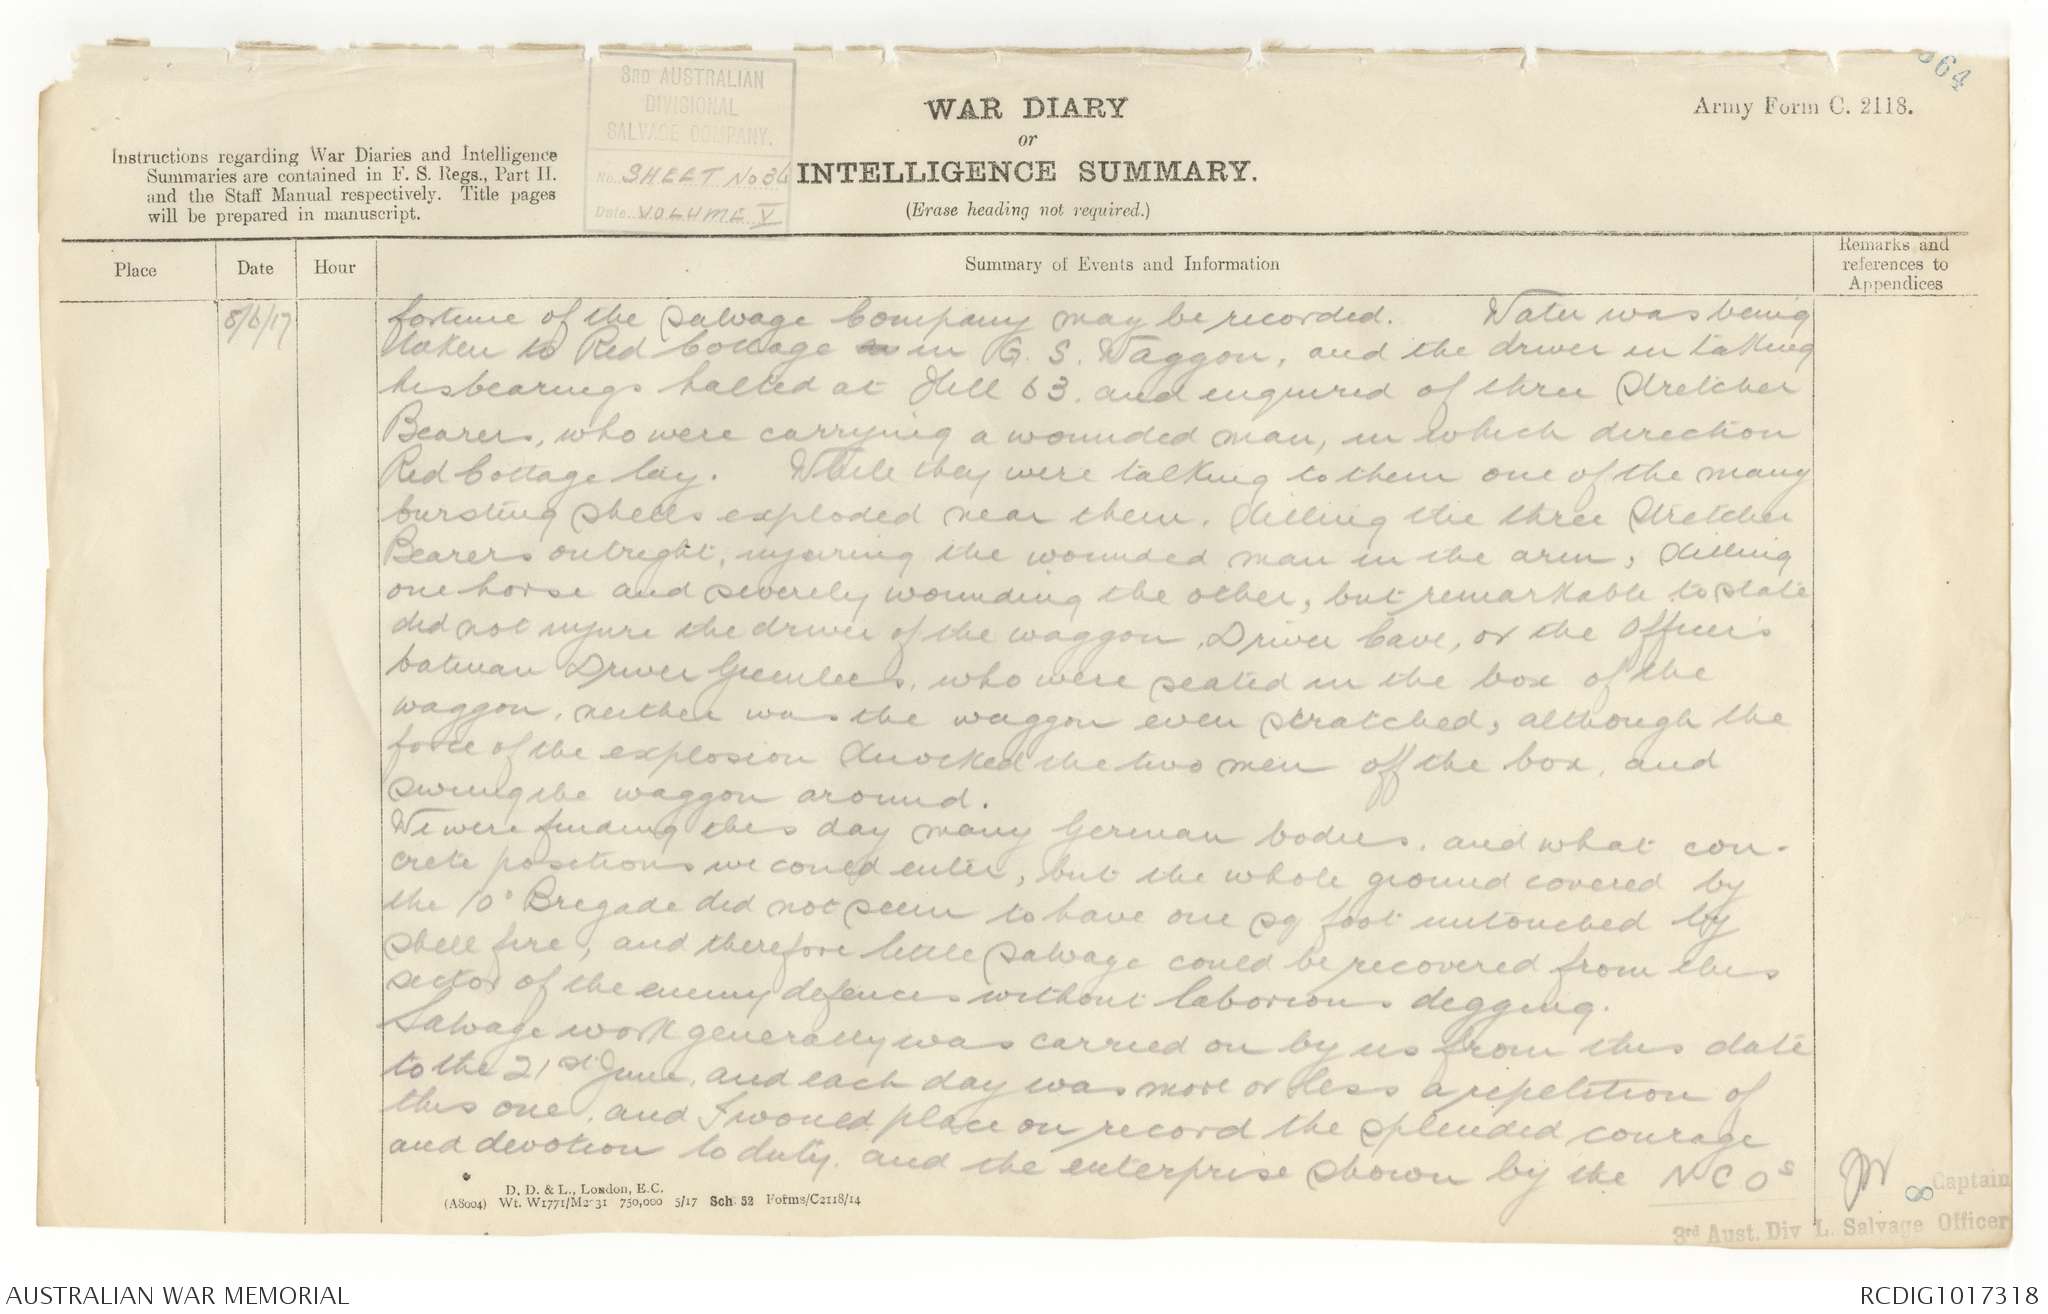 3RD AUSTRALIAN
DIVISIONAL
SALVAGE COMPANY.
No. SHEET No 36
Date. VOLUME V
WAR DIARY
or
INTELLIGENCE SUMMARY.
(Erase heading not required.)
Army Form C. 2118.
364
Instructions regarding War Diaries and Intelligence
Summaries are contained in F. S. Regs., Part II.
and the Staff Manual respectively. Title pages
will be prepared in manuscript.
Place
Date
Hour
Summary of Events and Information
Remarks and
references to
Appendices
8/6/17
fortune of the Salvage Company may be recorded. Water was being
taken to Red Cottage in G. S. Waggon, and the driver in taking
his bearings halted at Hill 63, and enquired of three Stretcher
Bearers, who were carrying a wounded man, in which direction
Red Cottage lay. While they were talking to them one of the many
bursting shells exploded near them, killing the three Stretcher
Bearers outright, injuring the wounded man in the arm, killing
one horse and severely wounding the other, but remarkable to state
did not injure the driver of the waggon, Driver Cave, or the Officer's
batman Driver Greenlees, who were seated in the box of the
waggon, neither was the waggon even scratched, although the
force of the explosion knocked the two men off the box, and
swung the waggon around.
We were finding this day many German bodies, and what con-
crete positions we could enter, but the whole ground covered by
the 10° Brigade did not seem to have one sq foot untouched by
shell fire, and therefore little salvage could be recovered from this
sector of the enemy defences without laborious digging.
Salvage work generally was carried on by us from this date
to the 21st June, and each day was more or less a repetition of
this one, and I would place on record the splendid courage
and devotion to duty, and the enterprise shown by the NCOs
D. D. & L., London, E.C.
(A8004) Wt. W1771/M2 31 750,000 5/17 Sch. 52 Forms/C2118/14
8 Captain
3rd Aust. Div L. Salvage Officer
AUSTRALIAN WAR MEMORIAL
RCDIG1017318